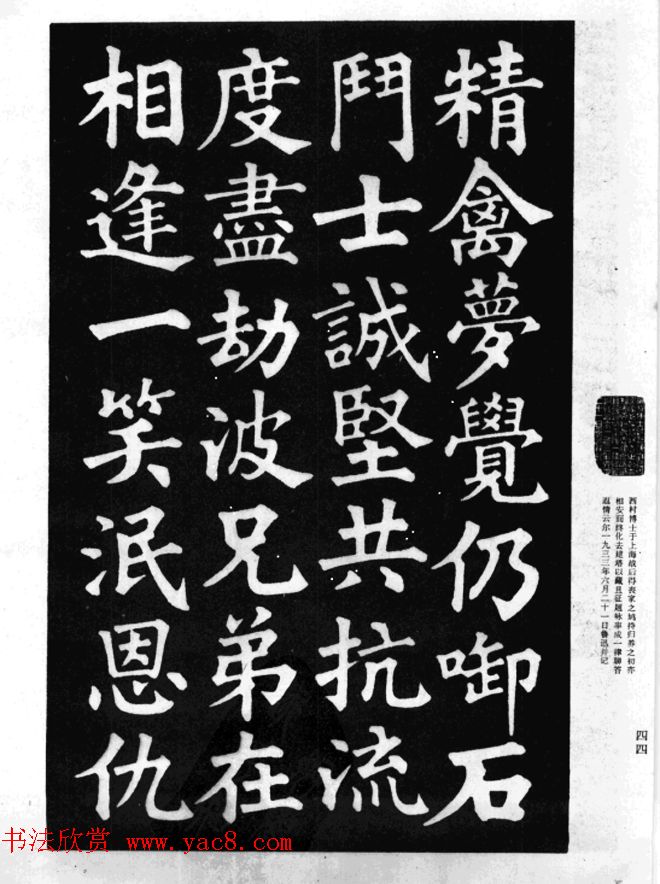 西村博士于上海战后得丧家之鸠持归养之初亦
相安而终化去建塔以藏且征题咏率成一律聊答
遐情云尔一九三三年六月二十一日鲁迅并记
四四
精禽夢覺仍啣石
鬥士誠堅共抗流
度盡劫波兄弟在
相逢一笑泯恩仇
书法欣赏 www.yac8.com